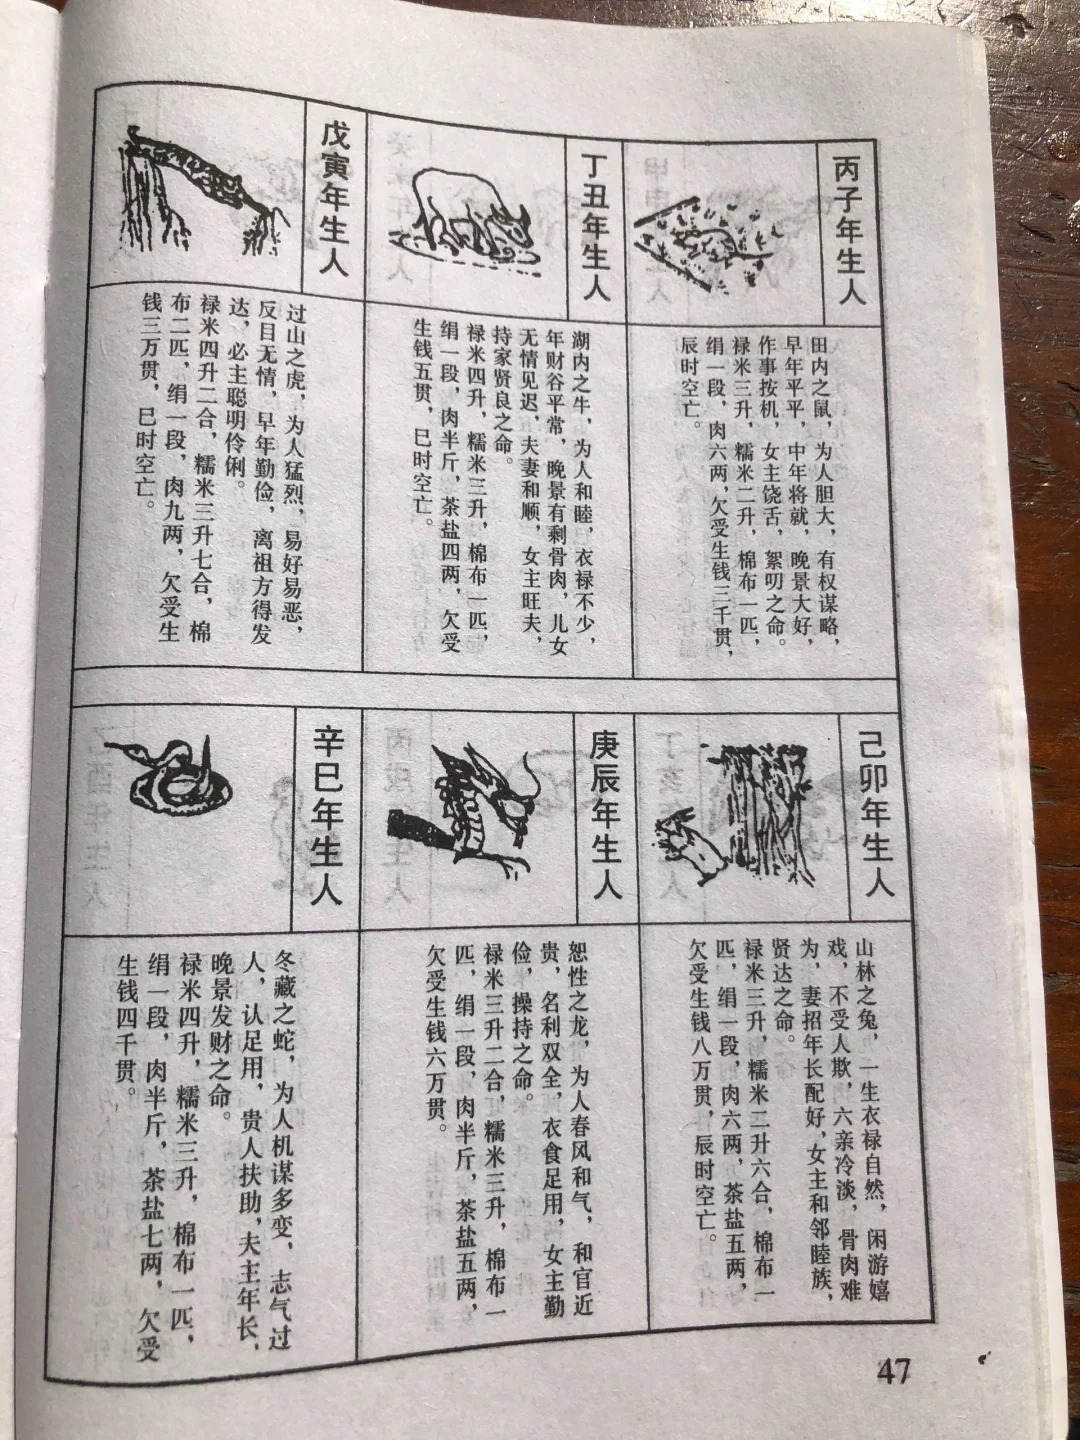 丙子年生人
田内之鼠，为人胆大，有权谋略，
早年平平，中年将就，晚景大好，
作事按机，女主饶舌，絮叨之命。
禄米三升，糯米二升，棉布一匹，
绢一段，肉六两，欠受生钱三千贯，
辰时空亡。
丁丑年生人
湖内之牛，为人和睦，衣禄不少，
年财谷平常，晚景有剩骨肉，儿女
无情见迟，夫妻和顺，女主旺夫，
持家贤良之命。
禄米四升，糯米三升，棉布一匹，
绢一段，肉半斤，茶盐四两，欠受
生钱五贯，巳时空亡。
戊寅年生人
过山之虎，为人猛烈，易好易恶，
反目无情，早年勤俭，离祖方得发
达，必主聪明伶俐。
禄米四升二合，糯米三升七合，棉
布二匹，绢一段，肉九两，欠受生
钱三万贯，巳时空亡。
己卯年生人
山林之兔，一生衣禄自然，闲游嬉
戏，不受人欺，六亲冷淡，骨肉难
为，妻招年长配好，女主和邻睦族，
贤达之命。
禄米三升，糯米二升六合，棉布一
匹，绢一段，肉六两，茶盐五两，
欠受生钱八万贯，辰时空亡。
庚辰年生人
恕性之龙，为人春风和气，和官近
贵，名利双全，衣食足用，女主勤
俭，操持之命。
禄米三升二合，糯米三升，棉布一
匹，绢一段，肉半斤，茶盐五两，
欠受生钱六万贯。
辛巳年生人
冬藏之蛇，为人机谋多变，志气过
人，认足用，贵人扶助，夫主年长，
晚景发财之命。
禄米四升，糯米三升，棉布一匹，
绢一段，肉半斤，茶盐七两，欠受
生钱四千贯。
47